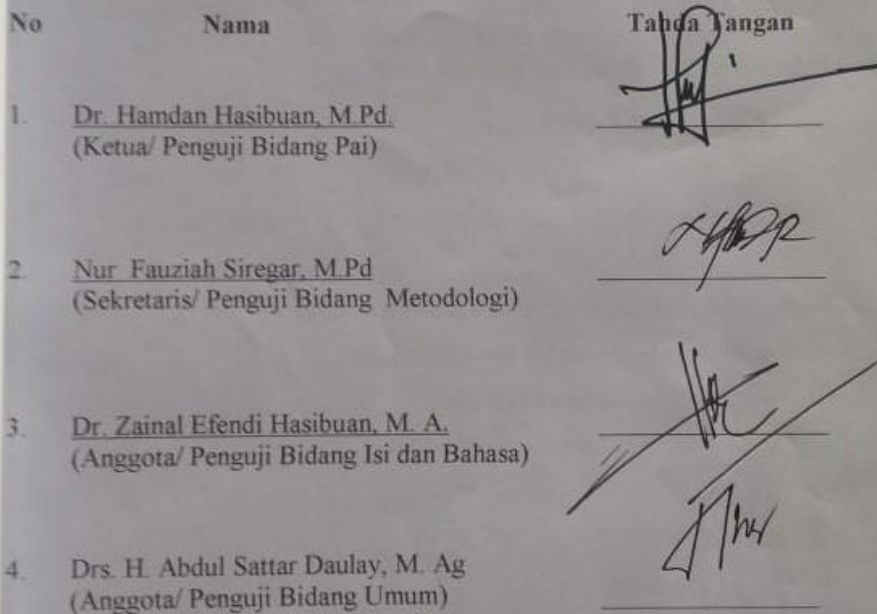 No Nama Tanda Tangan
1. Dr. Hamdan Hasibuan, M.Pd.
(Ketua/ Penguji Bidang Pai)
2. Nur Fauziah Siregar, M.Pd
(Sekretaris/ Penguji Bidang Metodologi)
3. Dr. Zainal Efendi Hasibuan, M. A.
(Anggota/ Penguji Bidang Isi dan Bahasa)
4. Drs. H. Abdul Sattar Daulay, M. Ag
(Anggota/ Penguji Bidang Umum)